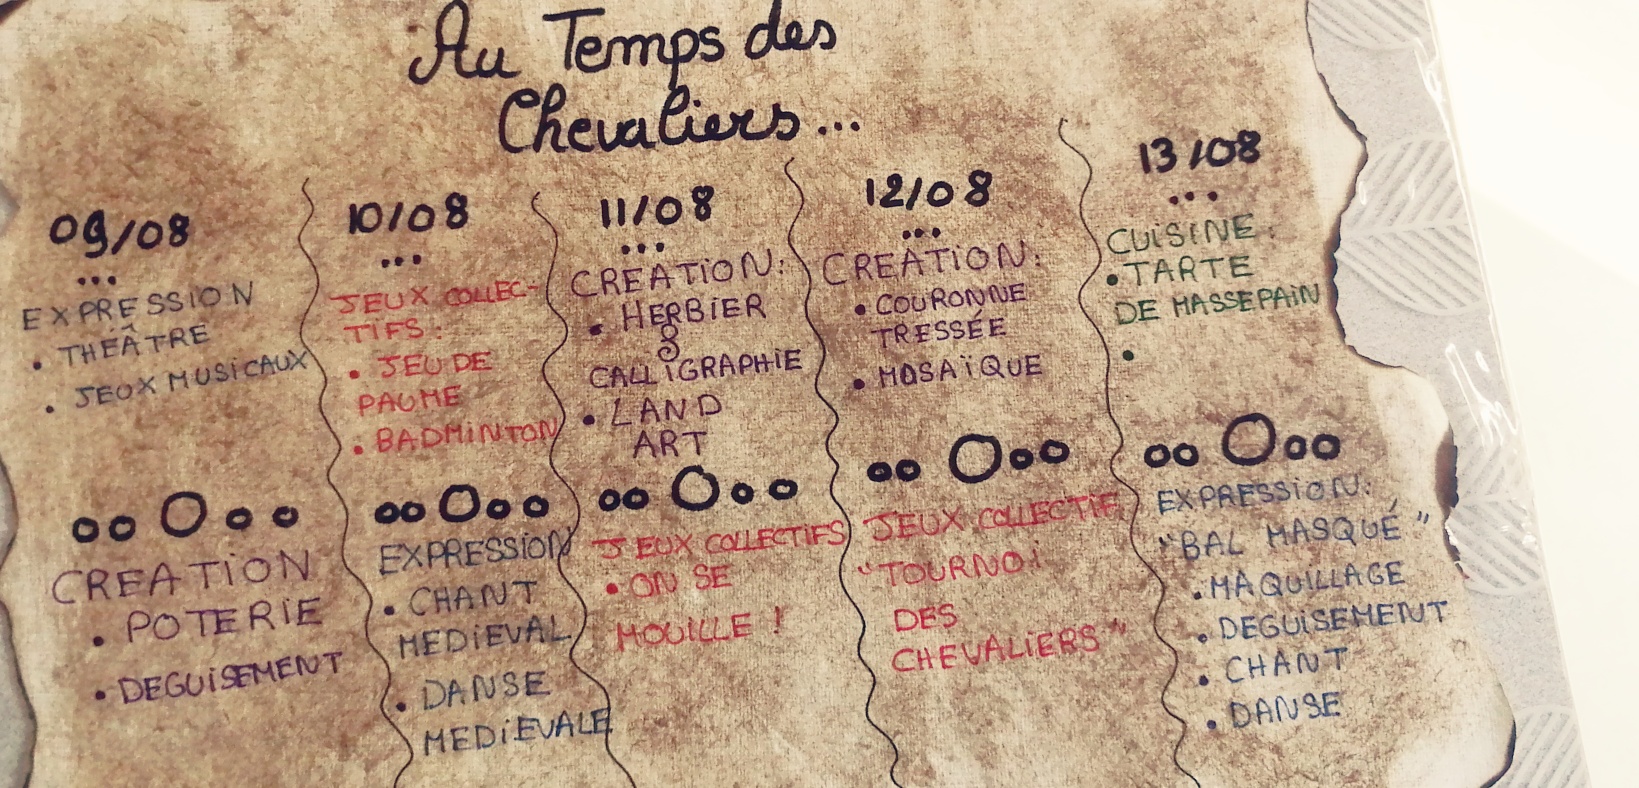 Au Temps des
Chevaliers...
09/08
...
EXPRESSION
• THÉÂTRE
• JEUX MUSICAUX
CREATION
• POTERIE
• DEGUISEMENT
10/08
...
JEUX COLLEC-
TIFS :
• JEU DE
PAUME
• BADMINTON
EXPRESSION
• CHANT
MEDIEVAL
• DANSE
MEDIEVALE
11/08
...
CREATION :
• HERBIER
&
CALLIGRAPHIE
• LAND
ART
JEUX COLLECTIFS
• ON SE
MOUILLE !
12/08
...
CREATION :
• COURONNE
TRESSÉE
• MOSAÏQUE
JEUX COLLECTIF
"TOURNOI
DES
CHEVALIERS"
13/08
...
CUISINE :
• TARTE
DE MASSEPAIN
•
EXPRESSION :
"BAL MASQUÉ"
• MAQUILLAGE
• DEGUISEMENT
• CHANT
• DANSE